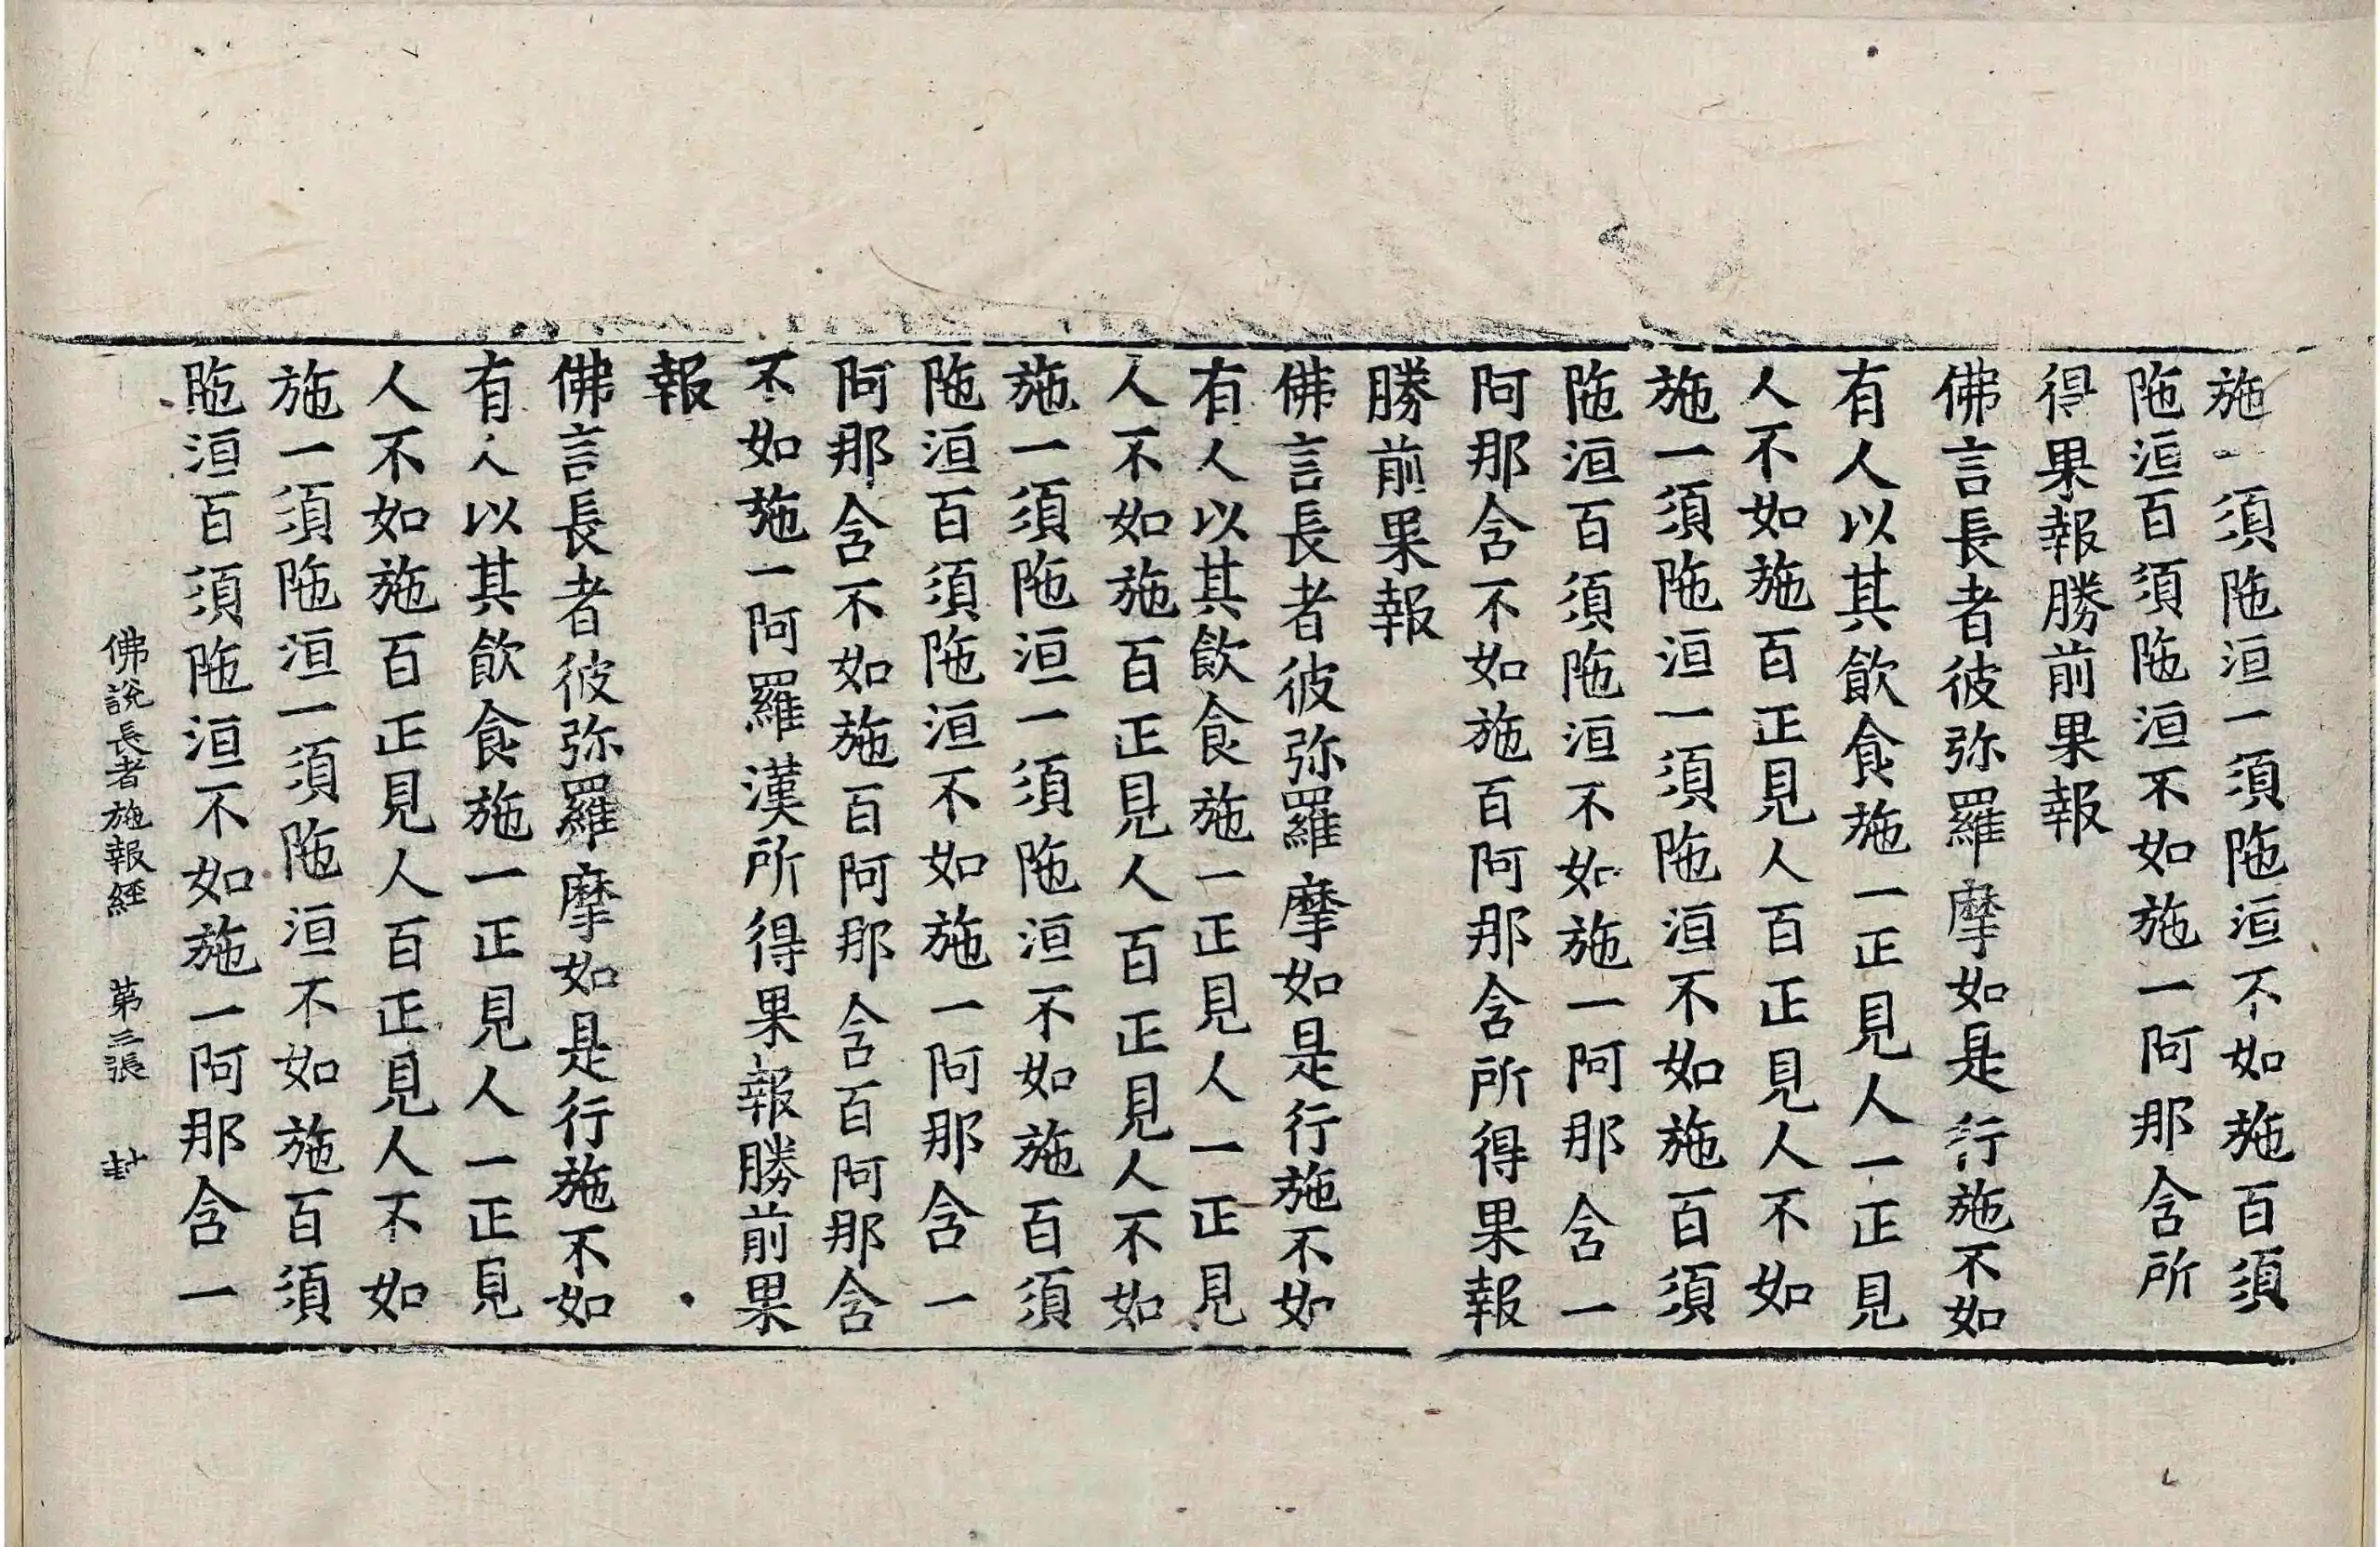 施一須陁洹一須陁洹不如施百須
陁洹百須陁洹不如施一阿那含所
得果報勝前果報
佛言長者彼弥羅摩如是行施不如
有人以其飲食施一正見人一正見
人不如施百正見人百正見人不如
施一須陁洹一須陁洹不如施百須
陁洹百須陁洹不如施一阿那含一
阿那含不如施百阿那含所得果報
勝前果報
佛言長者彼弥羅摩如是行施不如
有人以其飲食施一正見人一正見
人不如施百正見人百正見人不如
施一須陁洹一須陁洹不如施百須
陁洹百須陁洹不如施一阿那含一
阿那含不如施百阿那含百阿那含
不如施一阿羅漢所得果報勝前果
報
佛言長者彼弥羅摩如是行施不如
有人以其飲食施一正見人一正見
人不如施百正見人百正見人不如
施一須陁洹一須陁洹不如施百須
陁洹百須陁洹不如施一阿那含一
佛說長者施報經 第三張